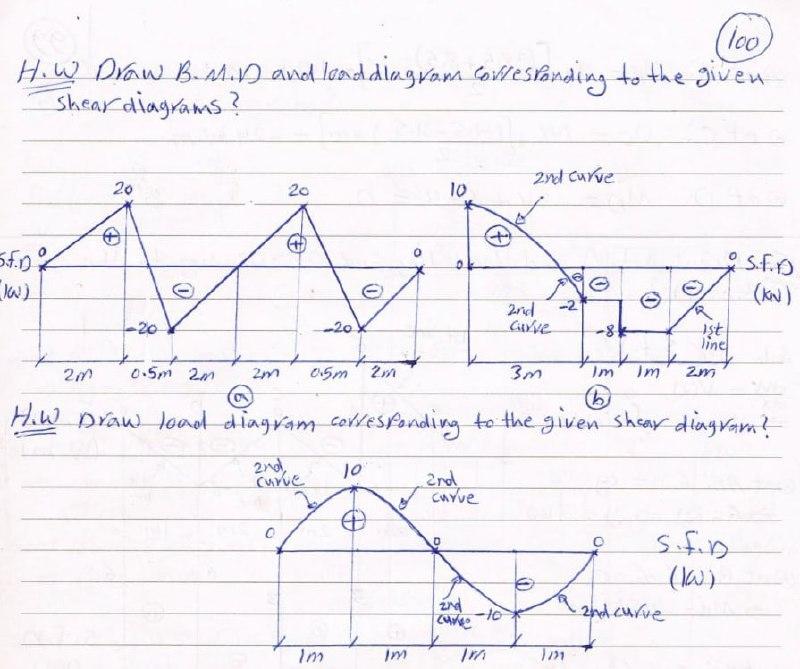 100
H.W Draw B.M.D and load diagram corresponding to the given
shear diagrams?
20 20 10 2nd curve
0 + + 0 + 0 S.F.D
S.F.D 0 - - 2nd curve - - - - (kN)
(kN) -20 -20 -2 -8 1st line
2m 0.5m 2m 2m 0.5m 2m 3m 1m 1m 2m
a b
H.W Draw load diagram corresponding to the given shear diagram?
2nd curve 10 2nd curve
0 + 0 0 S.F.D
- (kN)
2nd curve -10 2nd curve
1m 1m 1m 1m